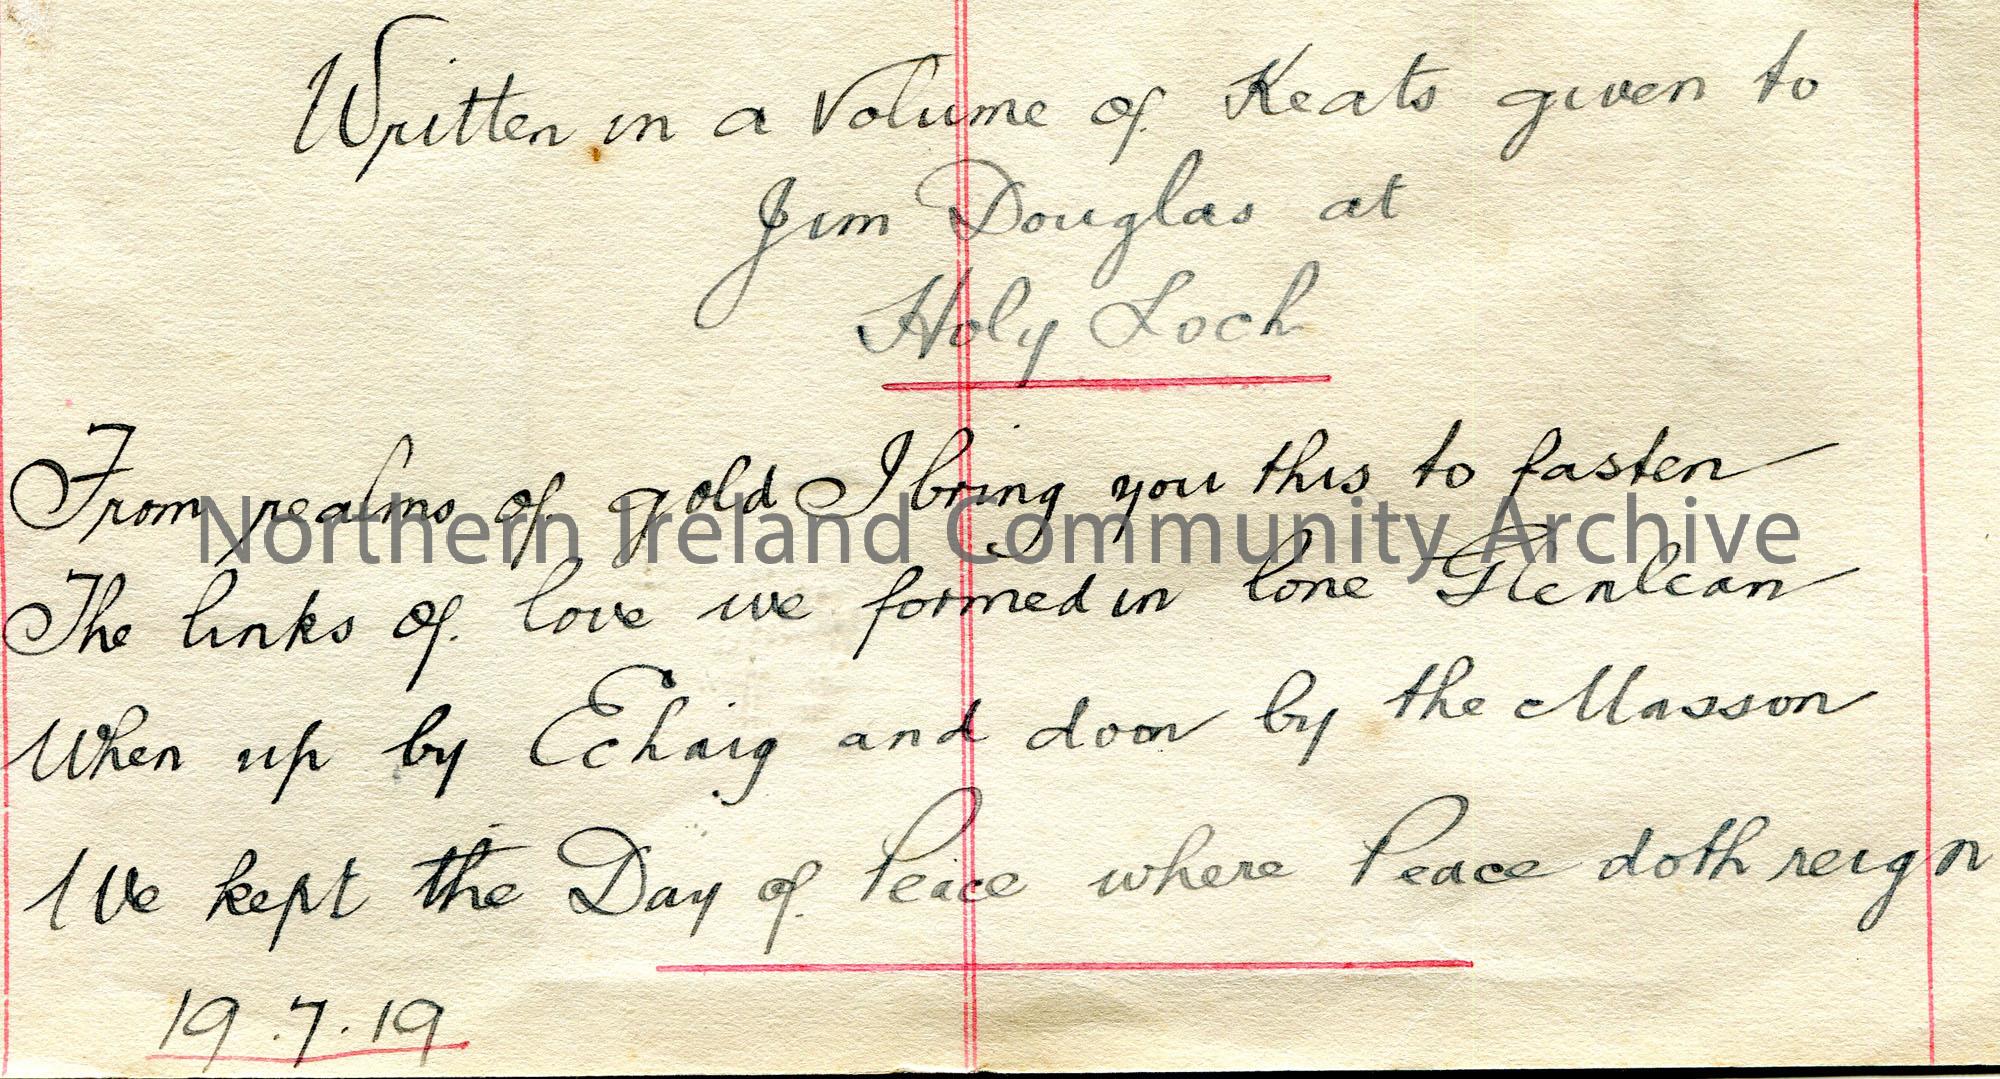 Written in a Volume of Keats given to
Jim Douglas at
Holy Loch
From realms of gold I bring you this to fasten
Northern Ireland Community Archive
The links of love we formed in lone Glenlean
When up by Echaig and doon by the Masson
We kept the Day of Peace where Peace doth reign
19.7.19